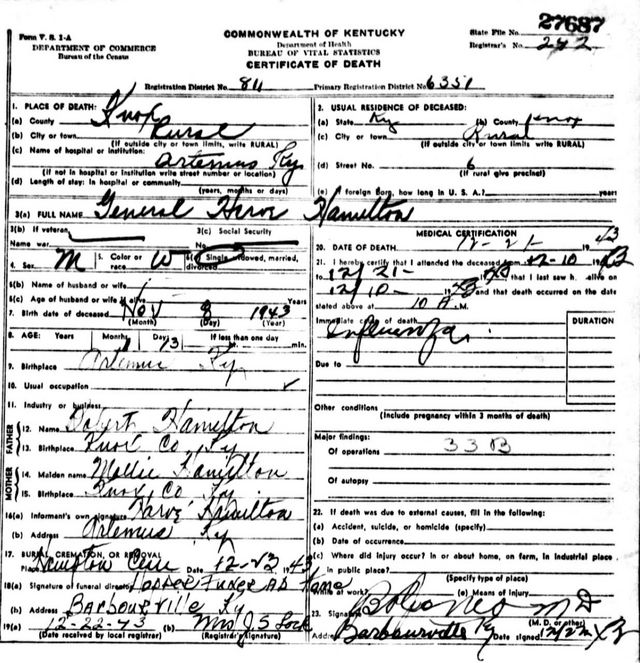 27687
Form V. S. 1-A
COMMONWEALTH OF KENTUCKY
State File No.
DEPARTMENT OF COMMERCE
Department of Health
Registrar's No. 242
Bureau of the Census
BUREAU OF VITAL STATISTICS
CERTIFICATE OF DEATH
Registration District No. 811 Primary Registration District No. 6351
1. PLACE OF DEATH:
(a) County Knox
(b) City or town Rural
(If outside city or town limits, write RURAL)
(c) Name of hospital or institution:
Artemus Ky
(If not in hospital or institution write street number or location)
(d) Length of stay: In hospital or community
(years, months or days)
2. USUAL RESIDENCE OF DECEASED:
(a) State Ky (b) County Knox
(c) City or town Rural
(If outside city or town limits, write RURAL)
(d) Street No. 6
(If rural give precinct)
(e) If foreign born, how long in U. S. A.? years
3(a) FULL NAME General Hamilton
3(b) If veteran,
Name war
3(c) Social Security
No.
4. Sex M 5. Color or race W 6(a) Single, widowed, married, divorced
6(b) Name of husband or wife
6(c) Age of husband or wife if alive Years
7. Birth date of deceased Nov 8 1943
(Month) (Day) (Year)
8. AGE: Years Months 1 Days 13 If less than one day
hr. min.
9. Birthplace Artemus Ky
10. Usual occupation
11. Industry or business
FATHER
12. Name Robert Hamilton
13. Birthplace Knox Co Ky
MOTHER
14. Maiden name Mollie Hamilton
15. Birthplace Knox Co Ky
16(a) Informant's own signature Hamilton
(b) Address Artemus Ky
17. BURIAL, CREMATION, OR REMOVAL
Place Hampton Cem Date 12-23 1943
18(a) Signature of funeral director Hopper Funeral Home
(b) Address Barbourville Ky
19(a) 12-22-43 (b) Mrs J. S. Lock
(Date received by local registrar) (Registrar's signature)
MEDICAL CERTIFICATION
20. DATE OF DEATH 12-21- 1943
21. I hereby certify that I attended the deceased from 12-10 1943
to 12/21- 1943 that I last saw h alive on
12/10- 1943 and that death occurred on the date
stated above at 10 A. M.
Immediate cause of death
DURATION
Influenza
Due to
Other conditions
(Include pregnancy within 3 months of death)
Major findings: 33B
Of operations
Of autopsy
22. If death was due to external causes, fill in the following:
(a) Accident, suicide, or homicide (specify)
(b) Date of occurrence
(c) Where did injury occur? in or about home, on farm, in industrial place
in public place?
(Specify type of place)
While at work? (e) Means of injury
23. Signature M D
(M. D. or other)
Address Barbourville Ky Date signed 12/22 43